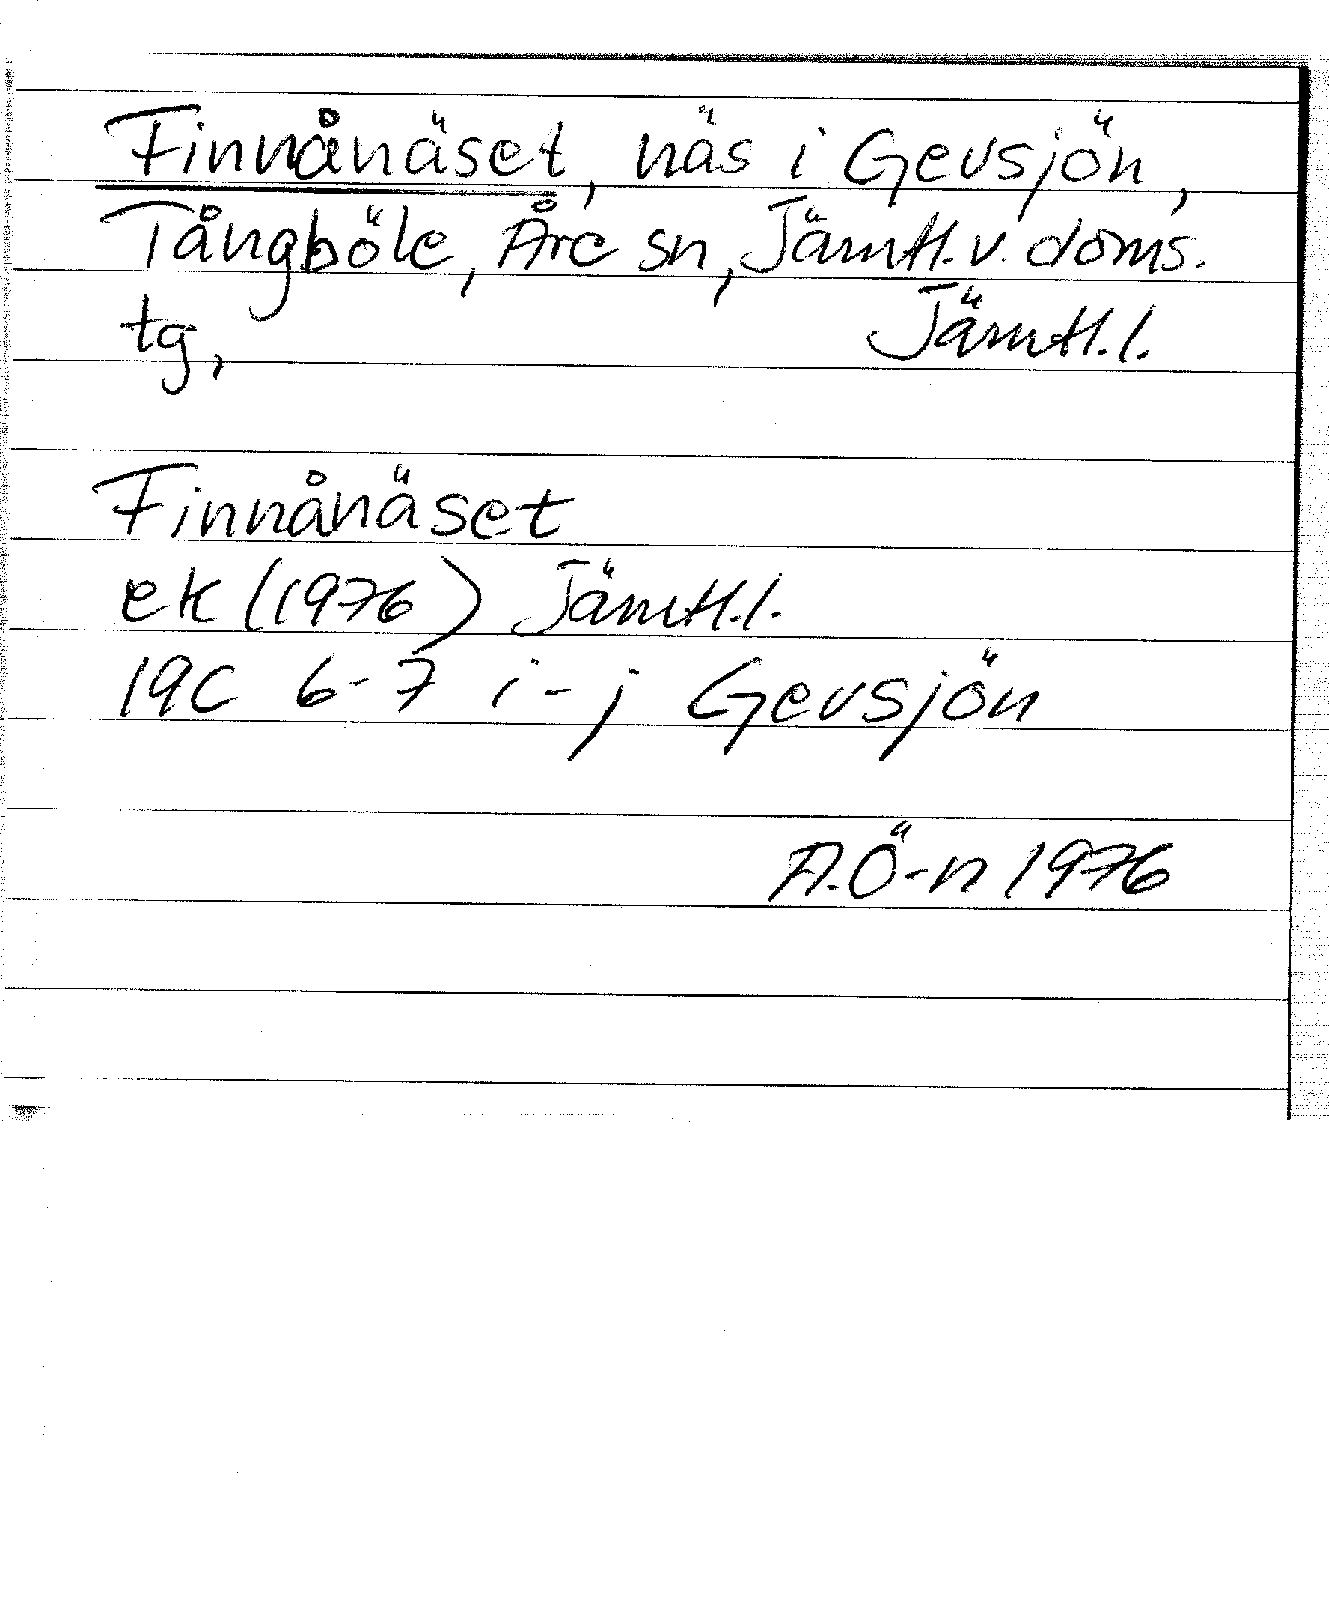 Finnånäset, näs i Gevsjön,
Tångböle, Åre sn, Jämtl. v. doms.
tg, Jämtl. l.
Finnånäset
ek (1976) Jämtl. l.
19C 6-7 i-j Gevsjön
A.Ö-n 1976